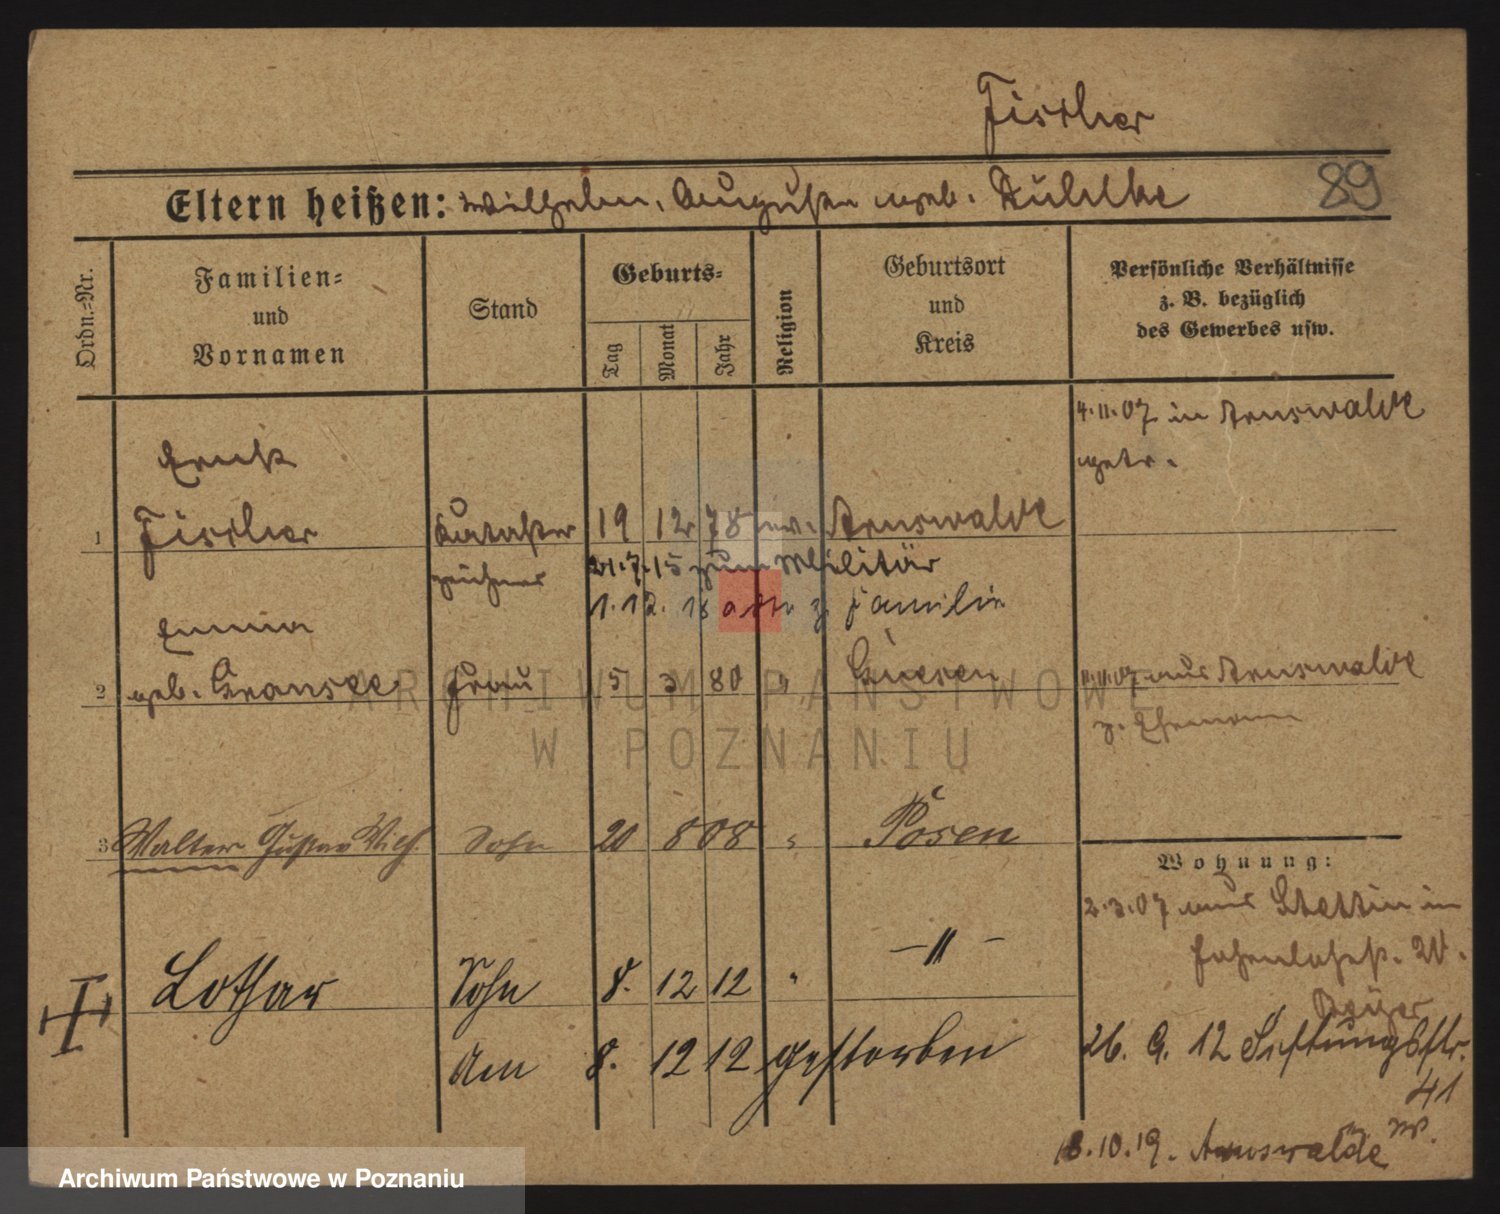 Fischer
Eltern heißen: Wilhelm, Augusten geb.
89
Ordn.-Nr.
Familien-
und
Vornamen
Stand
Geburts-
Tag
Monat
Jahr
Religion
Geburtsort
und
Kreis
Persönliche Verhältnisse
z. B. bezüglich
des Gewerbes usw.
4.11.07 in Arnswalde
getr.
Ernst
1 Fischer Kataster 19 12 78 ev. Arnswalde
zeichner 21.7.15 zum Militär
1.12.18 z. Familie
Emma
2 geb. Gransee Frau 5 3 80 " Gnesen 11.11.07 aus Arnswalde
z. Ehemann
3 Walter Gustav Wilh. Sohn 20 8 08 " Posen
Wohnung:
2.3.07 aus Stettin in
Hohenlohestr. 20.
Lothar Sohn 8. 12 12 " —"—
Am 8. 12 12 gestorben
26. 9. 12 Stiftungsstr.
41
18.10.19. Arnswalde
ARCHIWUM PAŃSTWOWE
W POZNANIU
Archiwum Państwowe w Poznaniu